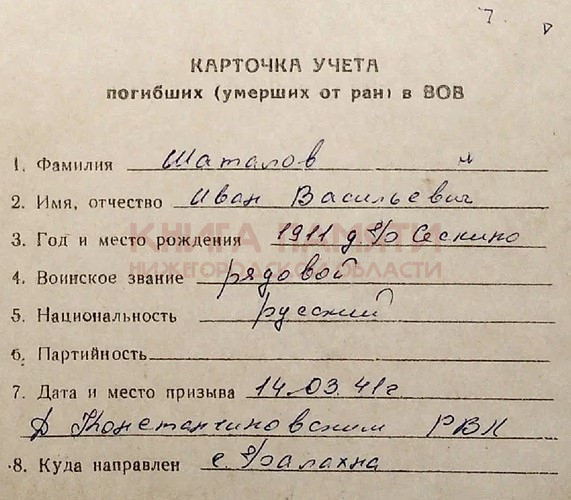 КАРТОЧКА УЧЕТА
погибших (умерших от ран) в ВОВ
1. Фамилия Шаталов
2. Имя, отчество Иван Васильевич
3. Год и место рождения 1911 д. Сескино
КНИГА ПАМЯТИ
НИЖЕГОРОДСКОЙ ОБЛАСТИ
4. Воинское звание рядовой
5. Национальность русский
6. Партийность
7. Дата и место призыва 14.03.41г
Константиновским РВК
8. Куда направлен